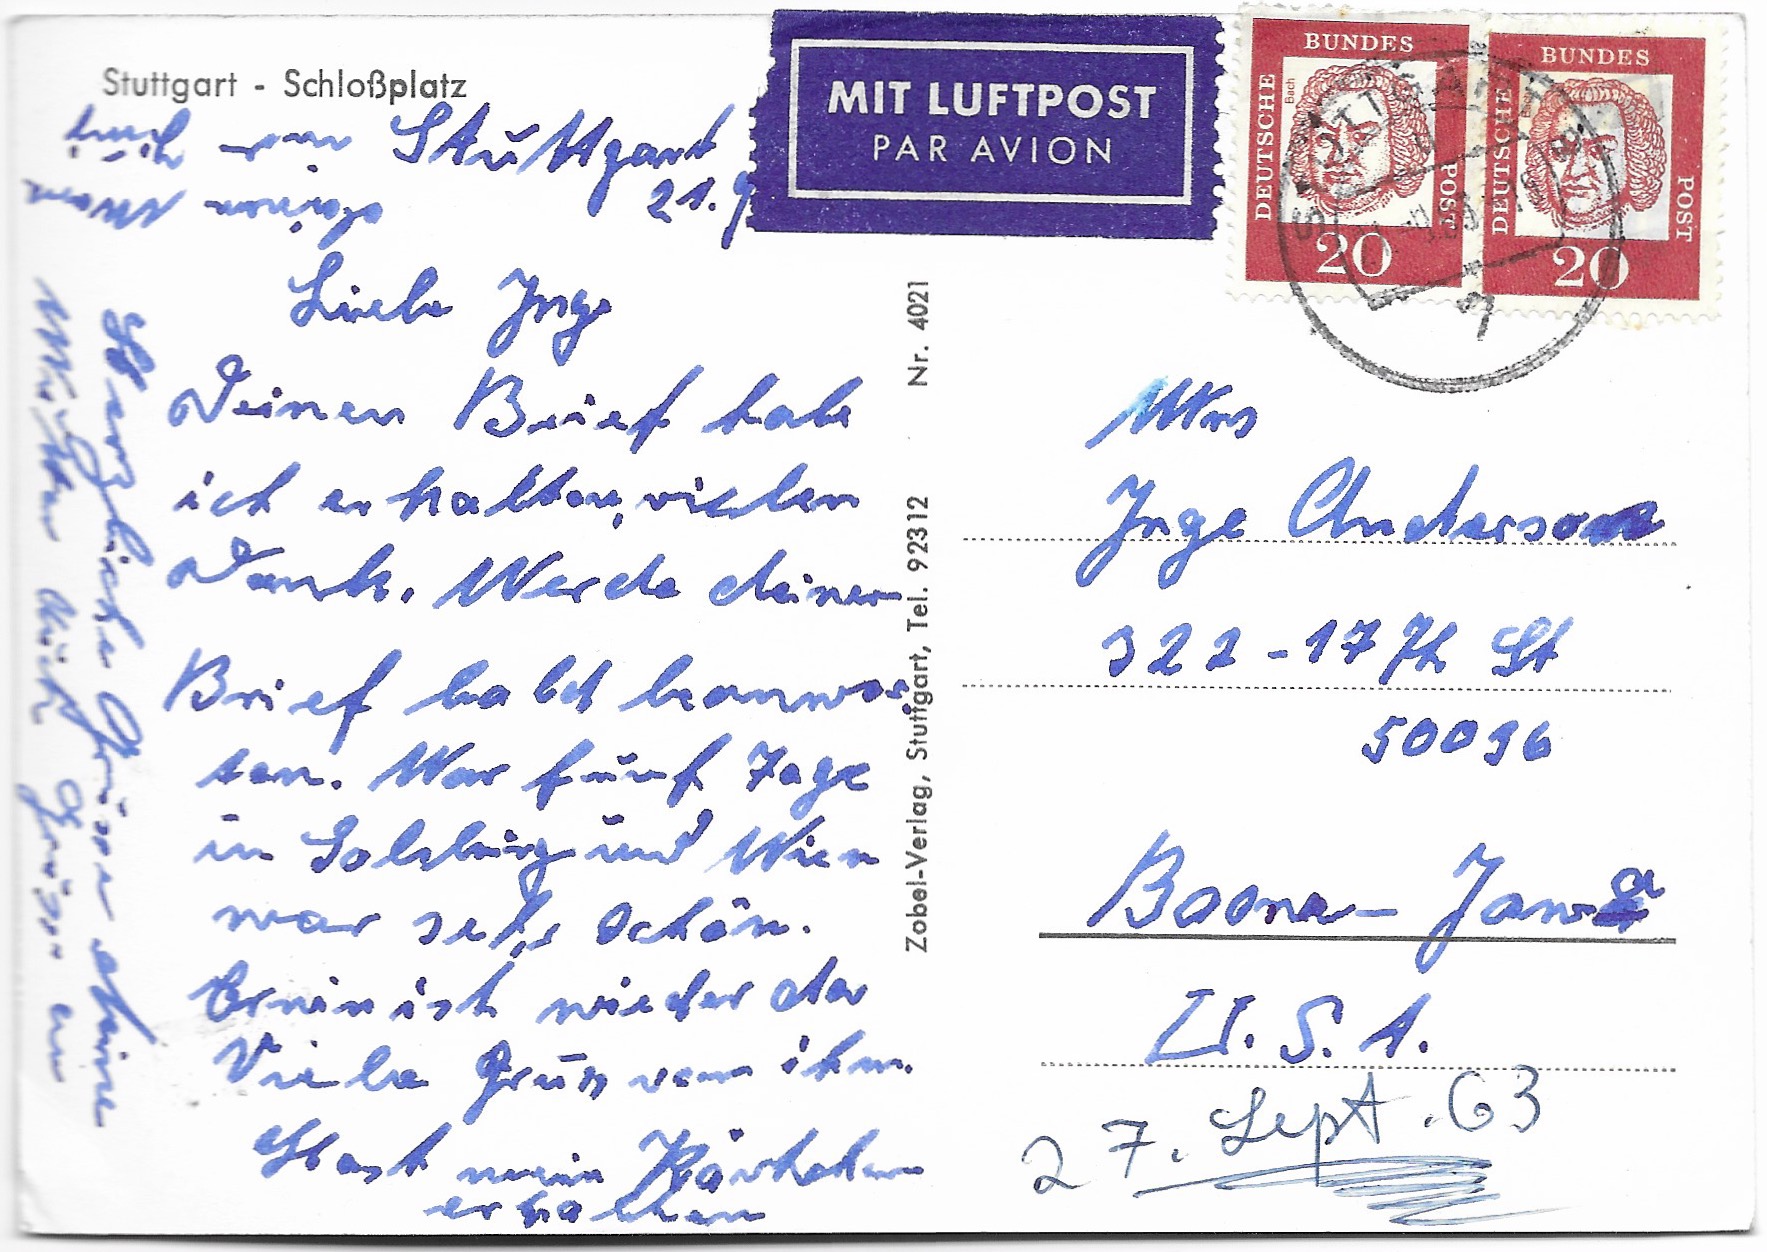 Stuttgart - Schloßplatz
MIT LUFTPOST
PAR AVION
DEUTSCHE BUNDES POST
Bach
20
DEUTSCHE BUNDES POST
20
Stuttgart
21.9
Liebe Inge
Deinen Brief habe
ich erhalten, vielen
Dank. Werde deinen
Brief bald beanwor
ten. War fünf Tage
in Salzburg und Wien
war sehr schön.
Erwin ist wieder da
Viele Grüß von ihm.
Hast mein Kärtchen
erhalten
Herzliche Grüsse deine
Mutter dich Grüßen
Nr. 4021
Zobel-Verlag, Stuttgart, Tel. 92312
Mrs
Inge Anderson
322-17 Th St
50036
Boone - Jowa
U.S.A.
27. Sept. 63